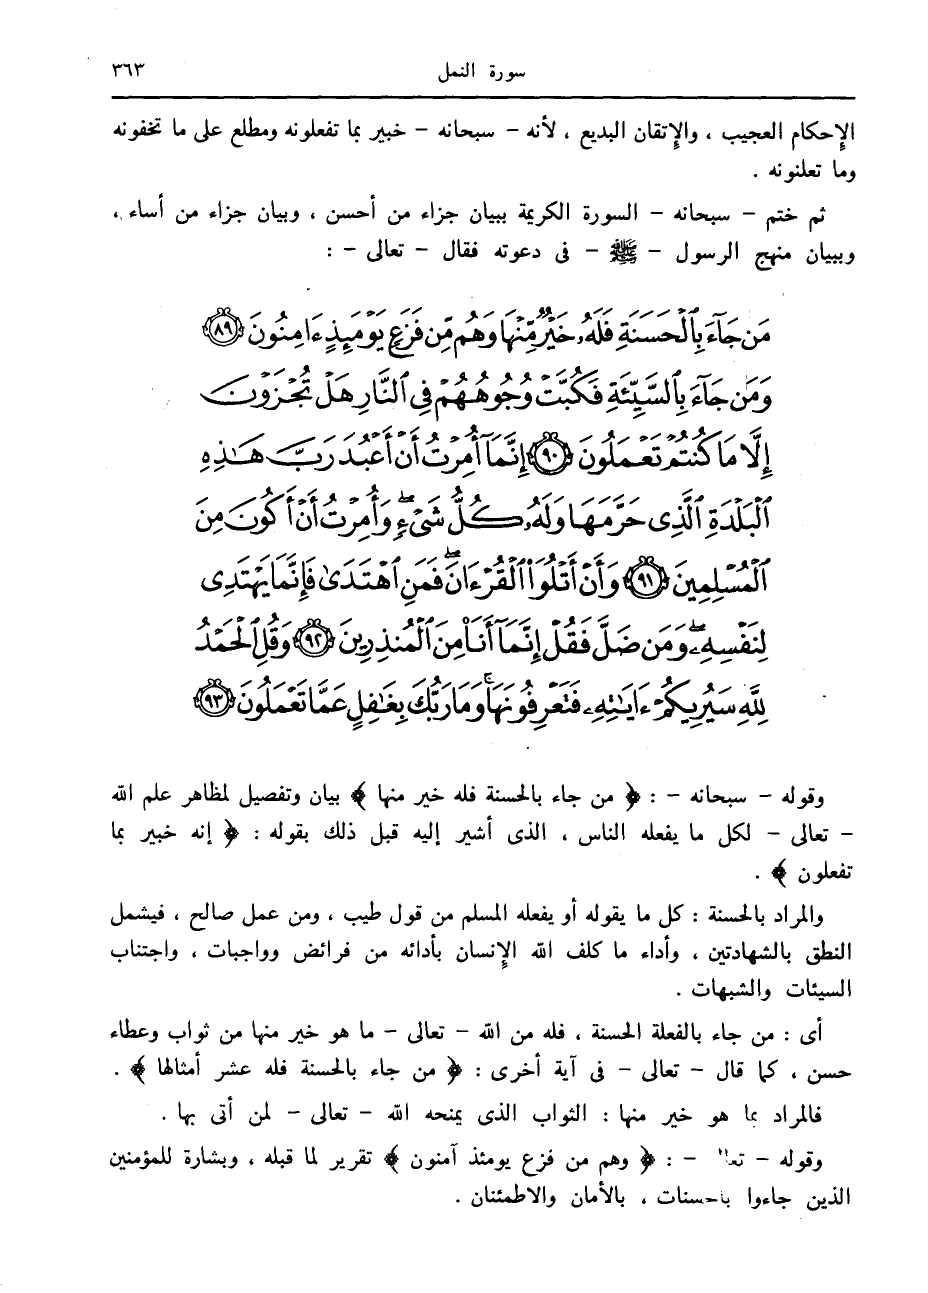 سورة النمل ٣٦٣
الإحكام العجيب ، والإتقان البديع ، لأنه – سبحانه – خبير بما تفعلونه ومطلع على ما تخفونه
وما تعلنونه .
ثم ختم – سبحانه – السورة الكريمة ببيان جزاء من أحسن ، وبيان جزاء من أساء ،
وببيان منهج الرسول – ﷺ – فى دعوته فقال – تعالى – :
مَن جَآءَ بِٱلْحَسَنَةِ فَلَهُۥ خَيْرٌ مِّنْهَا وَهُم مِّن فَزَعٍ يَوْمَئِذٍ ءَامِنُونَ ٨٩
وَمَن جَآءَ بِٱلسَّيِّئَةِ فَكُبَّتْ وُجُوهُهُمْ فِى ٱلنَّارِ هَلْ تُجْزَوْنَ
إِلَّا مَا كُنتُمْ تَعْمَلُونَ ٩٠ إِنَّمَآ أُمِرْتُ أَنْ أَعْبُدَ رَبَّ هَٰذِهِ
ٱلْبَلْدَةِ ٱلَّذِى حَرَّمَهَا وَلَهُۥ كُلُّ شَىْءٍۖ وَأُمِرْتُ أَنْ أَكُونَ مِنَ
ٱلْمُسْلِمِينَ ٩١ وَأَنْ أَتْلُوَا۟ ٱلْقُرْءَانَۖ فَمَنِ ٱهْتَدَىٰ فَإِنَّمَا يَهْتَدِى
لِنَفْسِهِۦۖ وَمَن ضَلَّ فَقُلْ إِنَّمَآ أَنَا۠ مِنَ ٱلْمُنذِرِينَ ٩٢ وَقُلِ ٱلْحَمْدُ
لِلَّهِ سَيُرِيكُمْ ءَايَٰتِهِۦ فَتَعْرِفُونَهَاۚ وَمَا رَبُّكَ بِغَٰفِلٍ عَمَّا تَعْمَلُونَ ٩٣
وقوله – سبحانه – : ﴿ من جاء بالحسنة فله خير منها ﴾ بيان وتفصيل لمظاهر علم الله
– تعالى – لكل ما يفعله الناس ، الذى أشير إليه قبل ذلك بقوله : ﴿ إنه خبير بما
تفعلون ﴾ .
والمراد بالحسنة : كل ما يقوله أو يفعله المسلم من قول طيب ، ومن عمل صالح ، فيشمل
النطق بالشهادتين ، وأداء ما كلف الله الإنسان بأدائه من فرائض وواجبات ، واجتناب
السيئات والشبهات .
أى : من جاء بالفعلة الحسنة ، فله من الله – تعالى – ما هو خير منها من ثواب وعطاء
حسن ، كما قال – تعالى – فى آية أخرى : ﴿ من جاء بالحسنة فله عشر أمثالها ﴾ .
فالمراد بما هو خير منها : الثواب الذى يمنحه الله – تعالى – لمن أتى بها .
وقوله – تعالى – : ﴿ وهم من فزع يومئذ آمنون ﴾ تقرير لما قبله ، وبشارة للمؤمنين
الذين جاءوا بالحسنات ، بالأمان والاطمئنان .